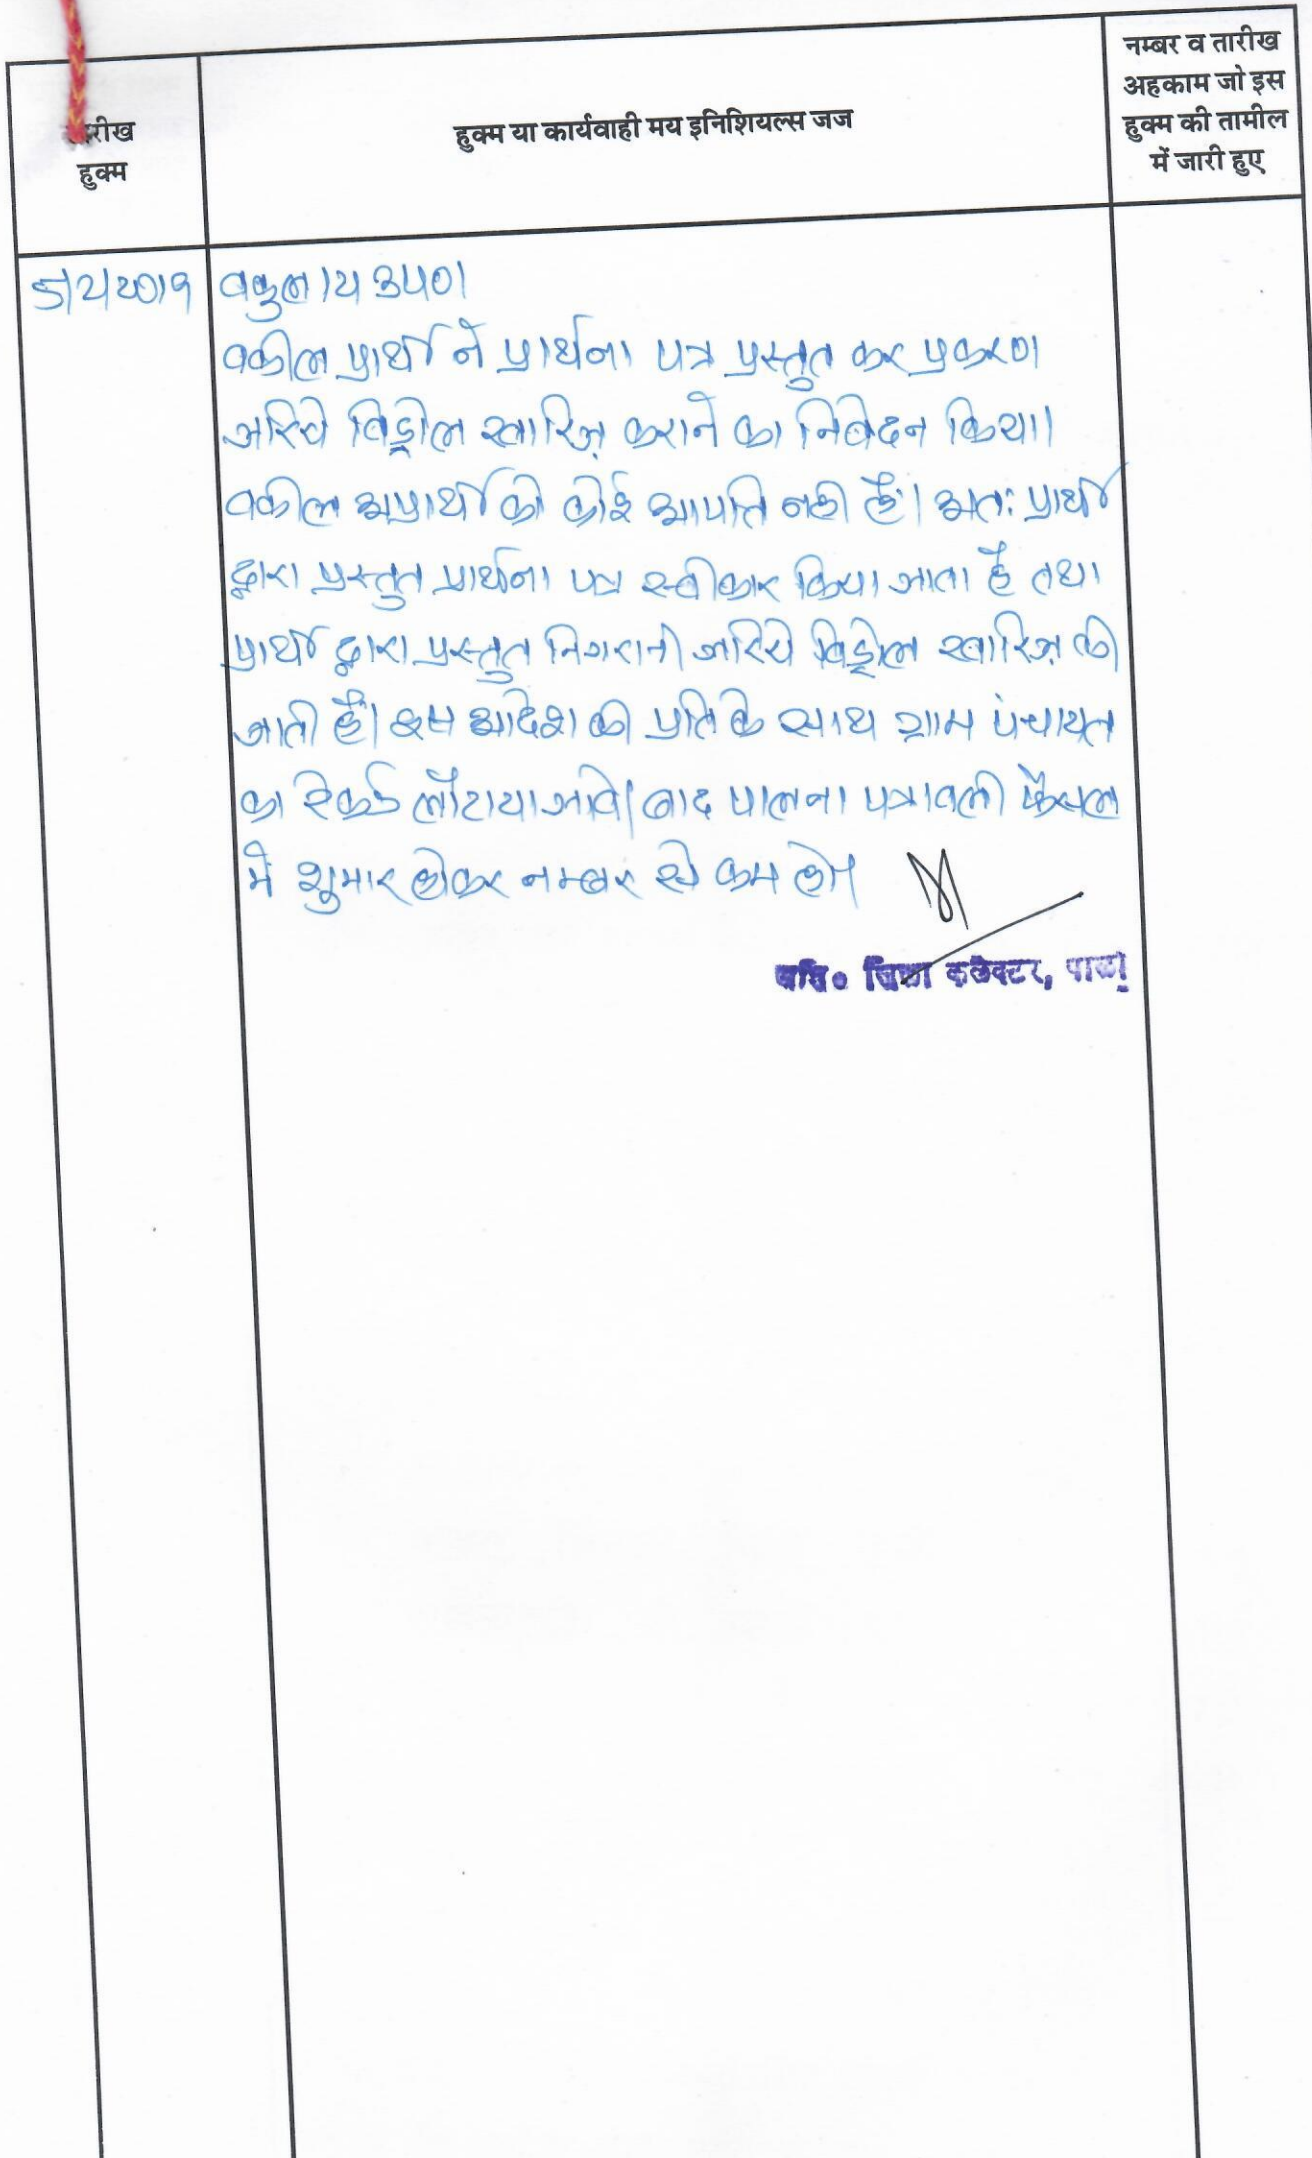 तारीख
हुक्म
हुक्म या कार्यवाही मय इनिशियल्स जज
नम्बर व तारीख
अहकाम जो इस
हुक्म की तामील
में जारी हुए
5/2/2019 वकुलाय उप0।
वकील प्रार्थी ने प्रार्थना पत्र प्रस्तुत कर प्रकरण
जरिये विड्रोल खारिज़ कराने का निवेदन किया।
वकील अप्रार्थी को कोई आपति नही हैं। अतः प्रार्थी
द्वारा प्रस्तुत प्रार्थना पत्र स्वीकार किया जाता है तथा
प्रार्थी द्वारा प्रस्तुत निगरानी जरिये विड्रोल खारिज़ की
जाती हैं। इस आदेश की प्रति के साथ ग्राम पंचायत
का रेकर्ड लौटाया जावे। बाद पालना पत्रावली फैसल
में शुमार होकर नम्बर से कम हो।
अति० जिला कलेक्टर, पाली